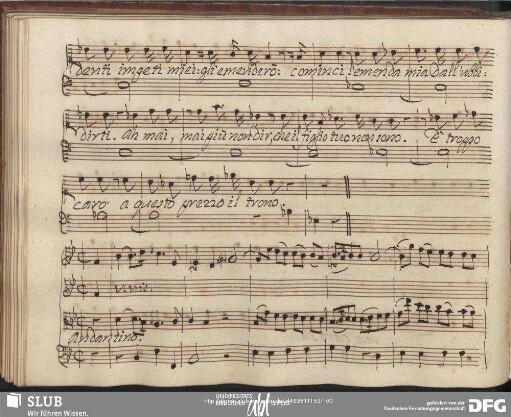 denti impeti miei gli emenderò: cominci l'emenda mia dall'ubbi:
dirti. Ah mai, mai più non dir, che il figlio tuo non sono. È troppo
caro a questo prezzo il trono
unis:
Andantino.
SLUB
Wir führen Wissen.
gefördert von der
Deutschen Forschungsgemeinschaft
DFG